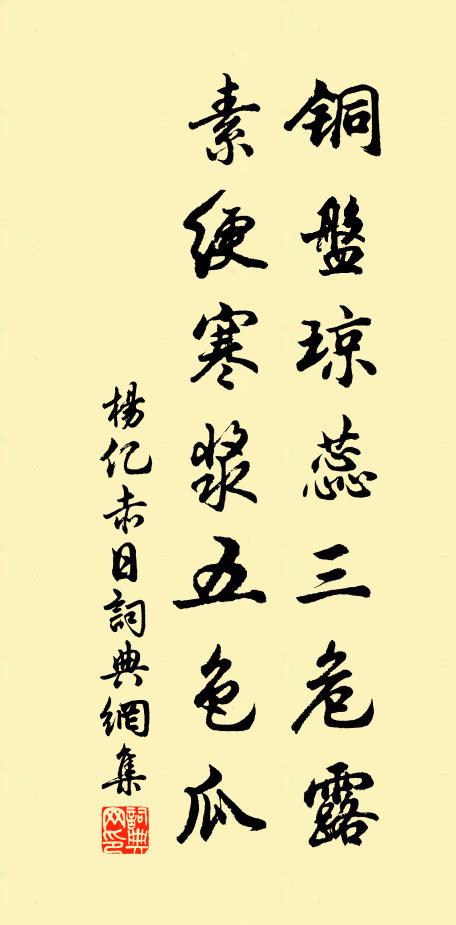 铜盤琼蕊三危露
素绠寒漿五色瓜
楊亿赤日詞典網集
詞典网印